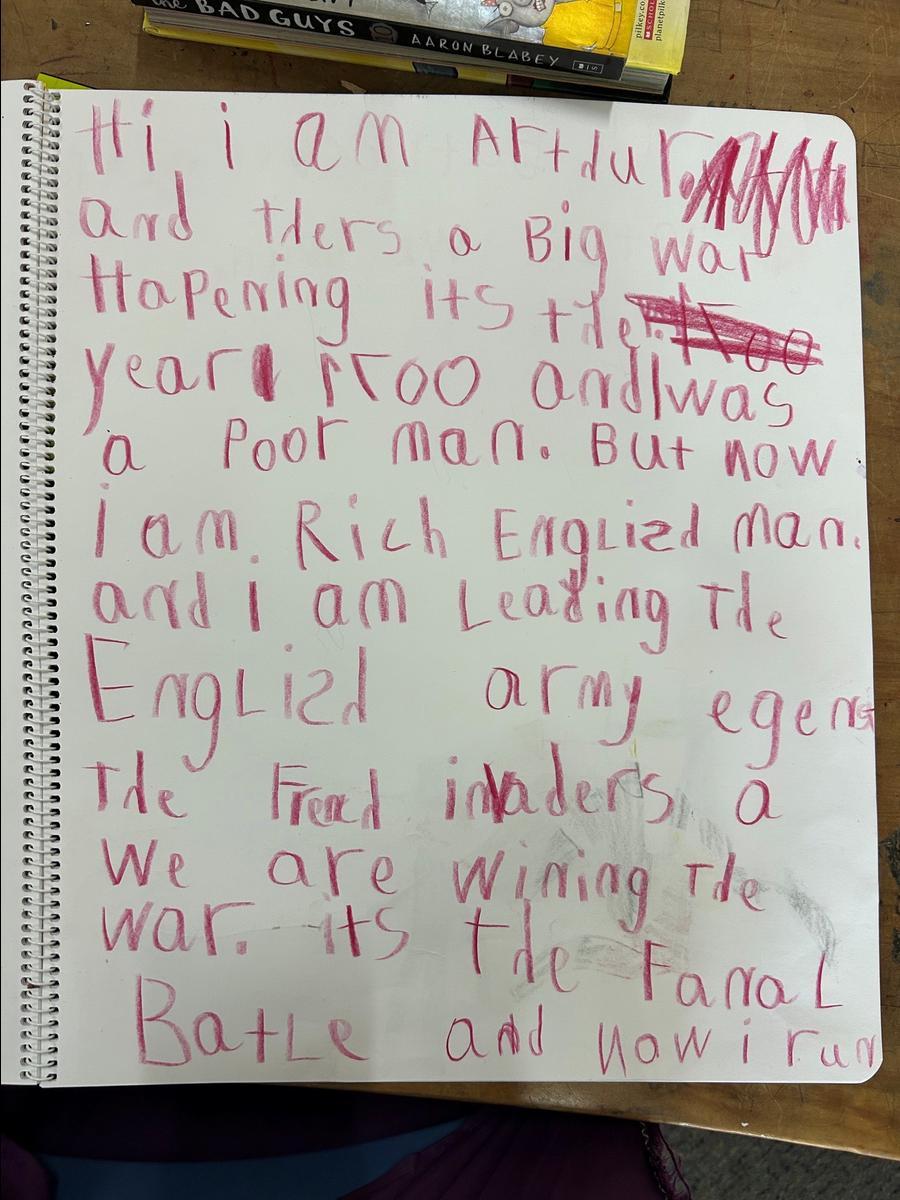 the BAD GUYS AARON BLABEY
pilkey.co
SCHOL
planetpilk
Hi i am Artdur.
and tders a Big war
Hapening its tde
year 1700 and I was
a Poor man. But now
i am. Rich EngLizd man.
and i am Leading Tde
EngLizd army egenst
Tde Frencd invaders a
We are wining Tde
war. its tde FanaL
BatLe and now i run